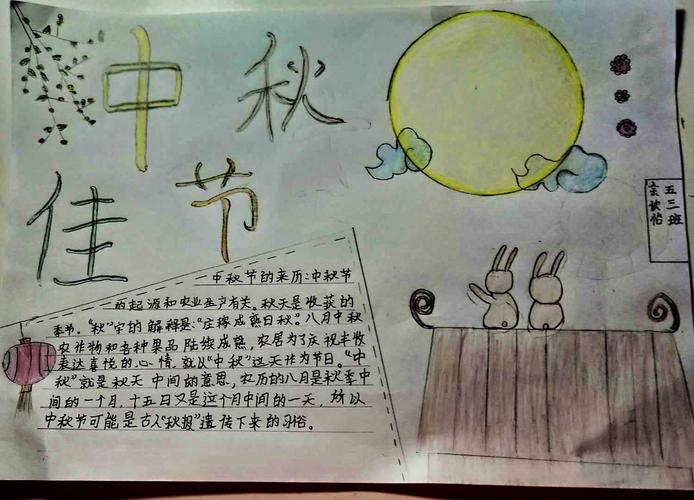 中秋
佳节
五三班
中秋节的来历:中秋节
的起源和农业生产有关。秋天是收获的
季节。“秋”字的解释是:“庄稼成熟曰秋”。八月中秋
农作物和各种果品陆续成熟,农居为了庆祝丰收
表达喜悦的心情,就以“中秋”这天作为节日。“中
秋”就是秋天中间的意思,农历的八月是秋季中
间的一个月,十五日又是这个月中间的一天,所以
中秋节可能是古人“秋报”遗传下来的习俗。